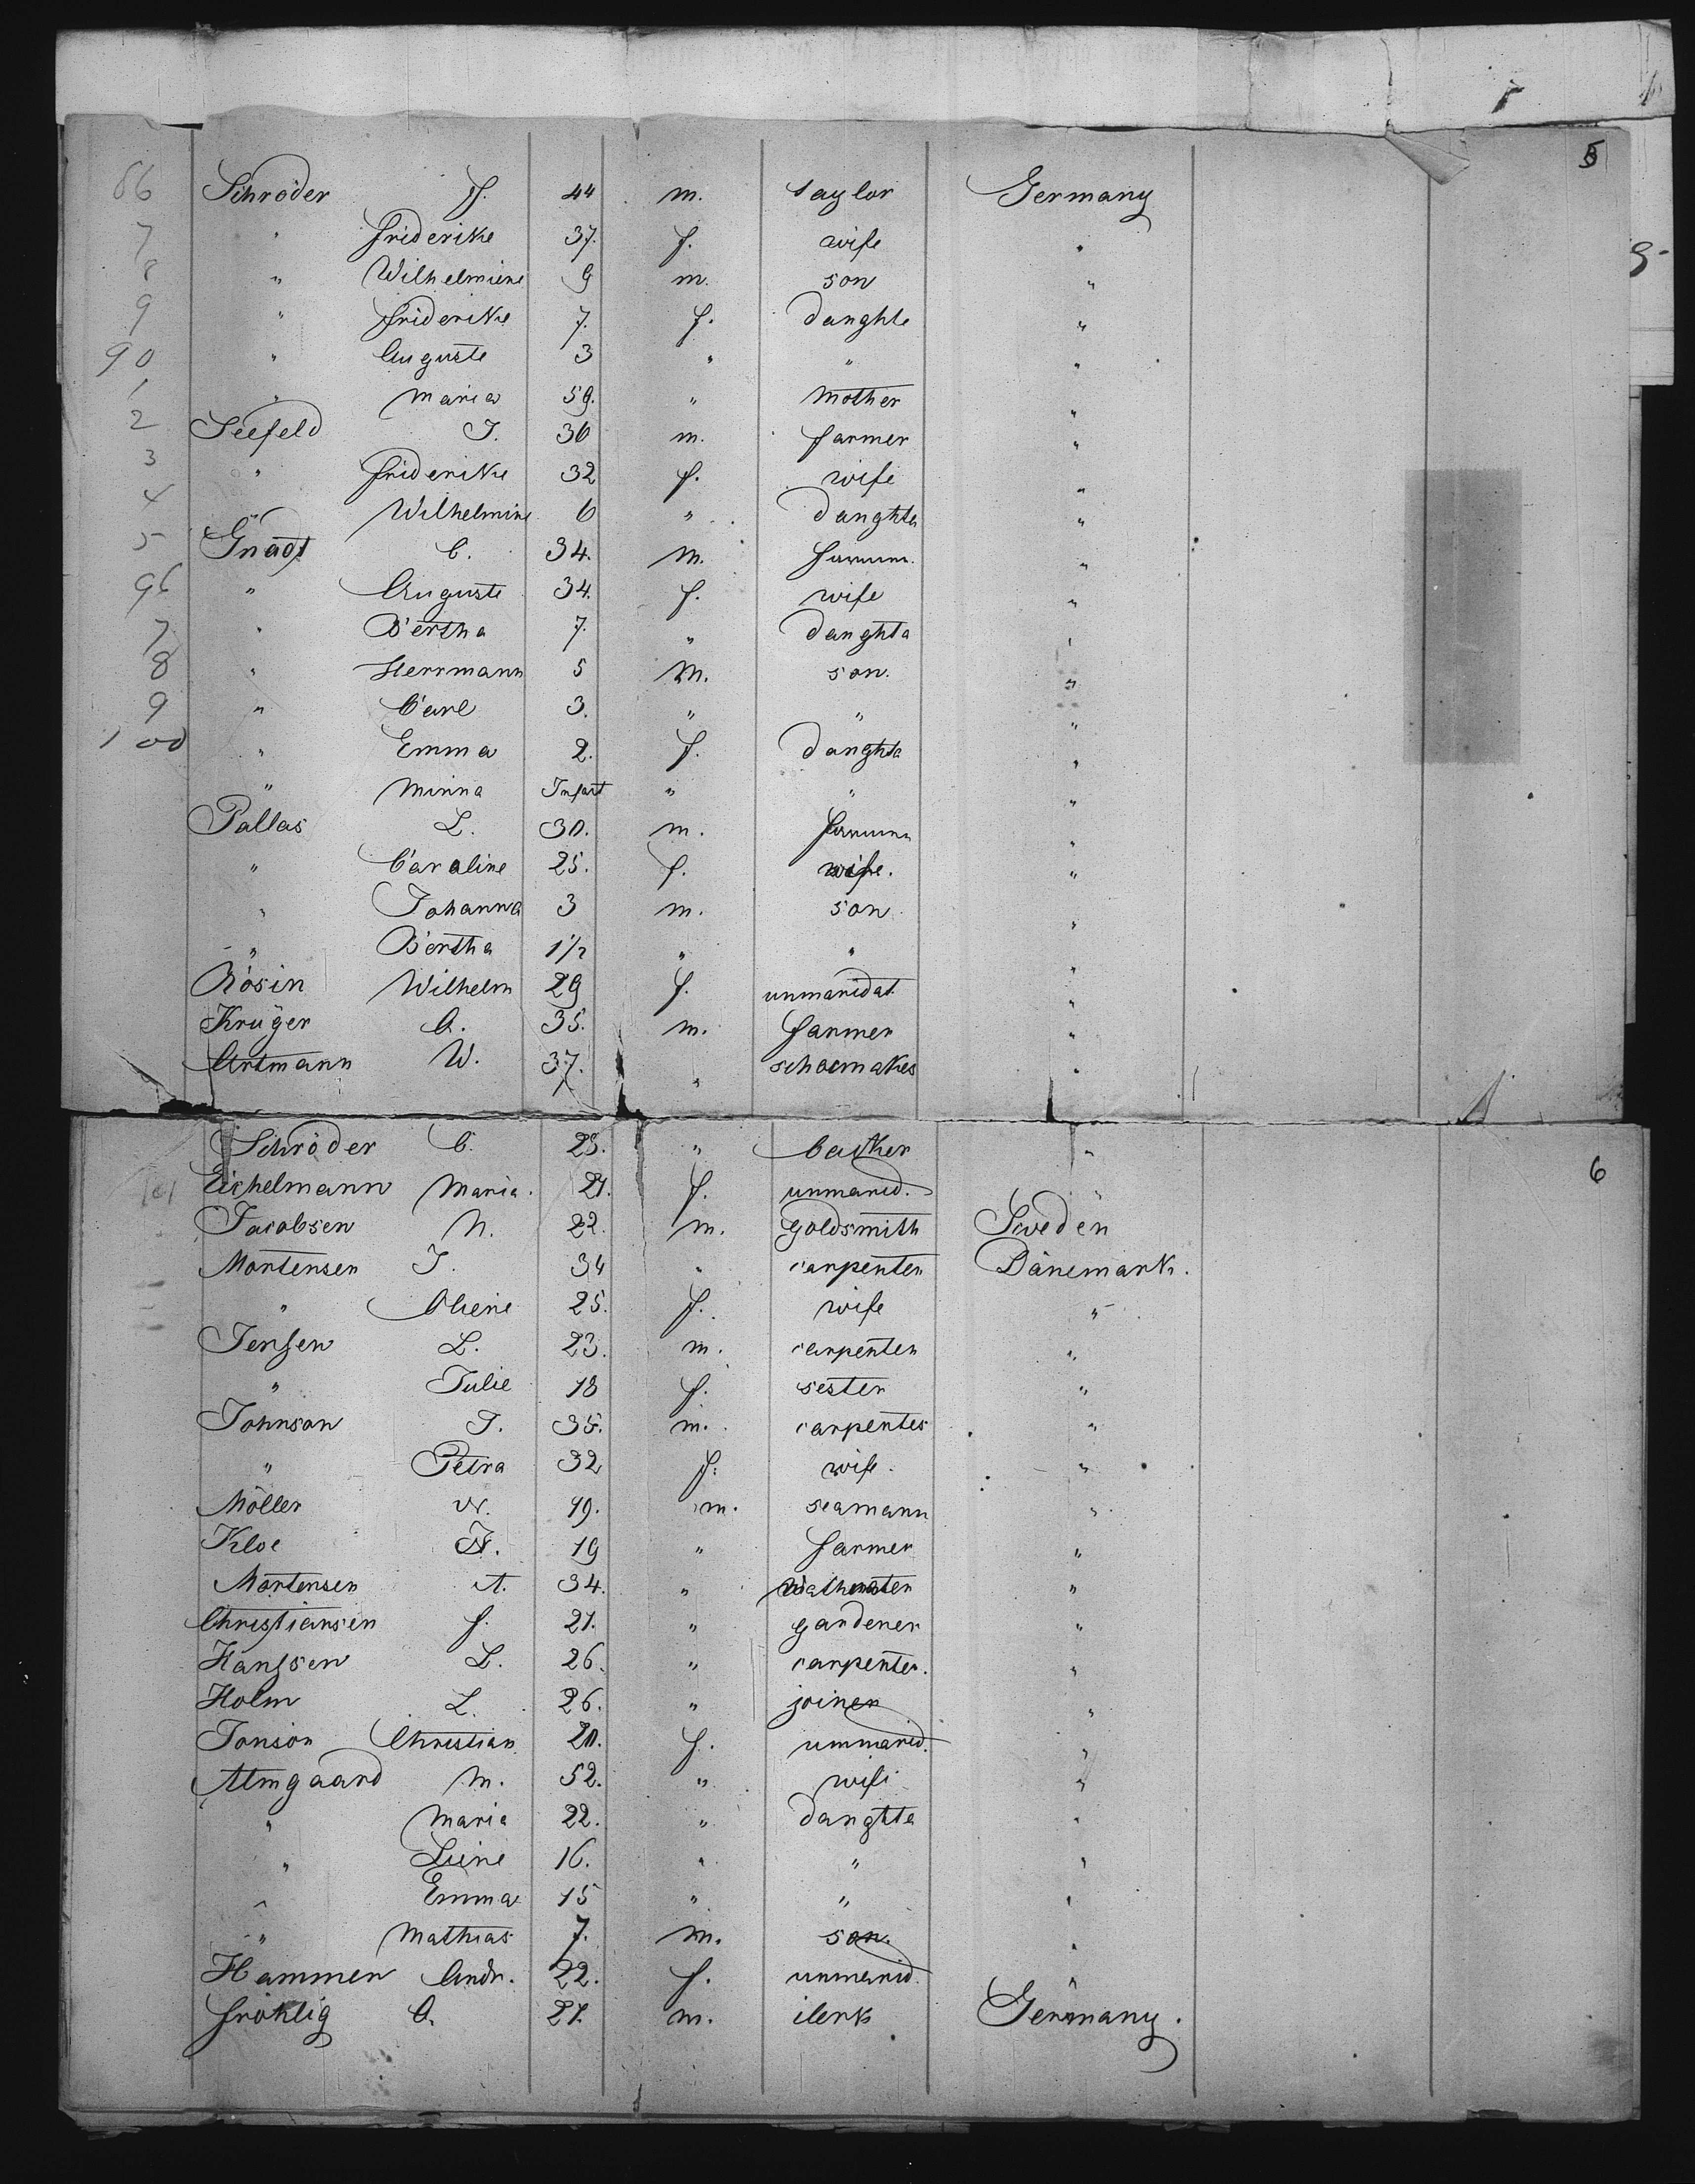 5
86 Schröder F. 44 m. taylor Germany
7 " Friderike 37. f. wife "
8 " Wilhelmiene 9 m. son "
9 " Friderike 7. f. daughte "
90 " Auguste 3 " " "
1 " Maria 59. " Mother "
2 Seefeld J. 36 m. farmer "
3 " Friderike 32 f. wife "
4 " Wilhelmine 6 " daughter "
5 Gnadt C. 34. m. "
96 " Auguste 34. f. wife "
7 " Bertha 7. " daughta "
8 " Herrmann 5 m. son. "
9 " Carl 3. " " "
100 " Emma 2. f. daughta "
" Minna Infant " " "
Pallas L. 30. m. "
" Caroline 25. f. wife. "
" Johanna 3 m. son "
" Bertha 1½ " " "
Rosin Wilhelm 29 f. unmaridat. "
Krüger A. 35. m. farmer "
Artmann W. 37. " schoemakes "
6
Schröder C. 25. " backer "
101 Eichelmann Maria. 21. f. unmarid. "
Jacobsen N. 22. m. goldsmith Sweden
Mortensen J. 34 " carpenter Dänemark.
" Oliene 25. f. wife "
Jensen L. 23. m. carpenter "
" Julie 18 f. sester "
Johnson J. 35. m. carpenter "
" Petra 32 f. wife. "
Möller W. 19. m. seamann "
Kloe 19 " farmer "
Mortensen A. 34. " "
Christiansen f. 21. " gardener "
Hanssen L. 26. " carpenter. "
Holm L. 26. " joiner "
Jonson Christian 20. f. unmarid. "
Almgaard M. 52. " wife "
" Maria 22. " daughte "
" Liene 16. " " "
" Emma 15 " " "
" Mathias 7. m. son. "
Hammer Andr. 22. f. unmarid. "
Fröhlig A. 21. m. clerk Germany.